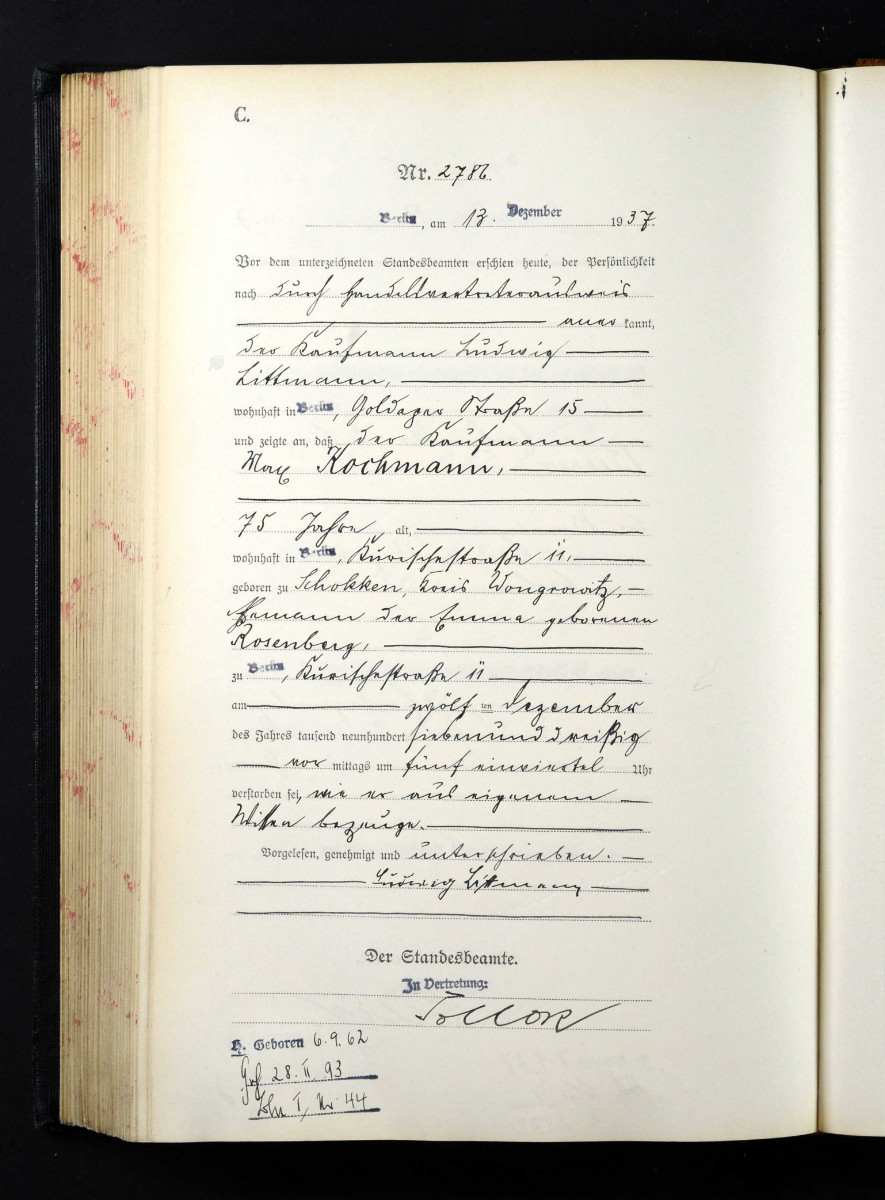 C.
Nr. 2786.
Berlin, am 13. Dezember 1937.
Vor dem unterzeichneten Standesbeamten erschien heute, der Persönlichkeit
nach durch Handelsvertreterausweis
aner kannt,
der Kaufmann Ludwig
Littmann,
wohnhaft in Berlin, Goldaper Straße 15
und zeigte an, daß der Kaufmann
Max Kochmann,
75 Jahre alt,
wohnhaft in Berlin, Kurischestraße 11,
geboren zu Schokken, Kreis Wongrowitz,
Ehemann der Emma geborenen
Rosenberg,
zu Berlin, Kurischestraße 11
am zwölf ten Dezember
des Jahres tausend neunhundert siebenunddreißig
vor mittags um fünf einviertel Uhr
verstorben sei, wie er aus eigenem
Wissen bezeuge.
Vorgelesen, genehmigt und unterschrieben.
Ludwig Littmann
Der Standesbeamte.
In Vertretung:
H. Geboren 6.9.62
28. II. 93
I, Nr. 44